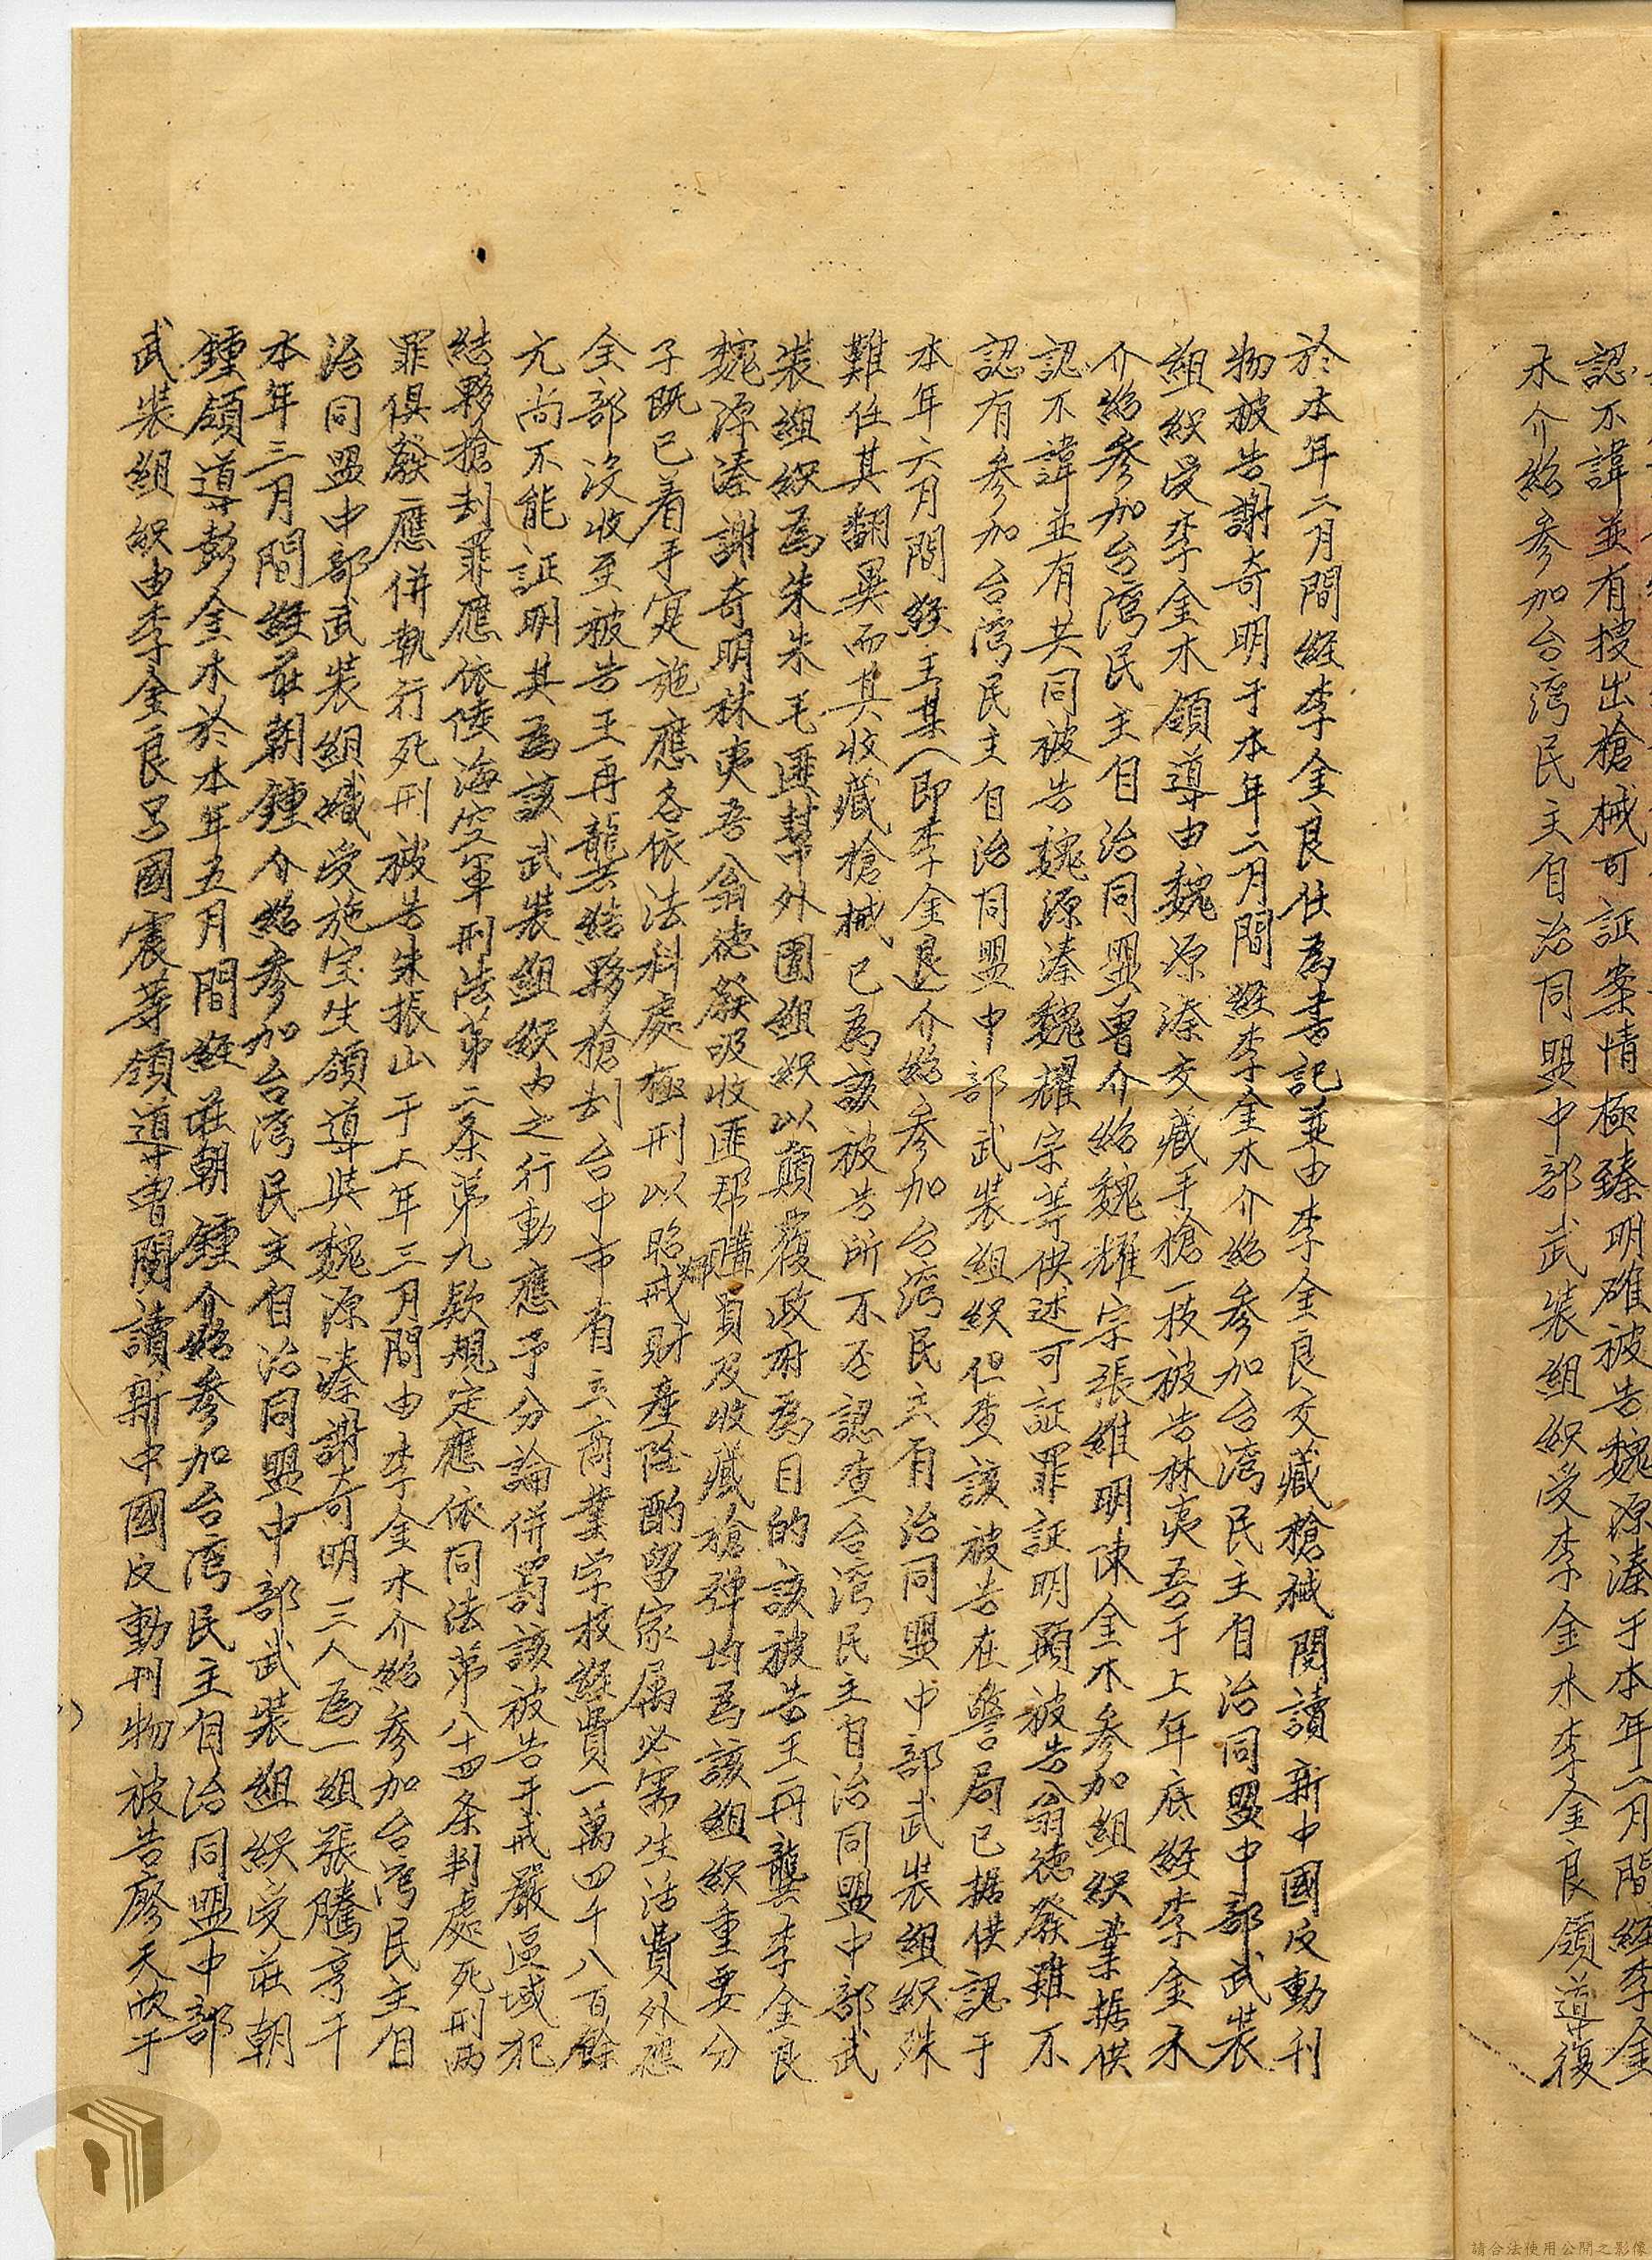 認不諱並有搜出槍械可証案情極臻明確被告魏源溱于本年二月間經李金
木介紹參加台灣民主自治同盟中部武裝組織受李金木李金良領導復
於本年二月間經李金良任為書記並由李金良交藏槍械閱讀新中國反動刊
物被告謝奇明于本年二月間經李金木介紹參加台灣民主自治同盟中部武裝
組織受李金木領導由魏源溱交藏手槍一枝被告林夷吾于上年底經李金木
介紹參加台灣民主自治同盟曾介紹魏耀宗張維明陳金木參加組織業据供
認不諱並有共同被告魏源溱魏耀宗等供述可証罪証明顯被告翁德發雖不
認有參加台灣民主自治同盟中部武裝組織但查該被告在警局已据供認于
本年六月間經王某(即李金良)介紹參加台灣民主自治同盟中部武裝組織殊
難任其翻異而其收藏槍械已為該被告所不否認查台灣民主自治同盟中部武
裝組織為朱朱毛匪幫外圍組織以顛覆政府為目的該被告王再龔李金良
魏源溱謝奇明林夷吾翁德發吸收匪幫購買及收藏槍彈均為該組織重要分
子既已着手定施應各依法科處極刑以昭烱戒財產除酌留家属必需生活費外應
全部沒收至被告王再龔結夥搶刦台中市有立商業学校經費一萬四千八百餘
元尚不能証明其為該武裝組織內之行動應予分論併罰該被告于戒嚴區域犯
結夥搶刦罪應依陸海空軍刑法第二条第九欵規定應依同法第八十四条判處死刑兩
罪俱發應併執行死刑被告朱振山于上年三月間由李金木介紹參加台灣民主自
治同盟中部武裝組織受施宝生領導與魏源溱謝奇明三人為一組張騰亨于
本年三月間經莊朝鍾介紹參加台灣民主自治同盟中部武裝組織受莊朝
鍾領導彭金水於本年五月間經莊朝鍾介紹參加台灣民主自治同盟中部
武裝組織由李金良呂國震等領導曾閱讀新中國反動刊物被告廖天欣于
請合法使用公開之影像